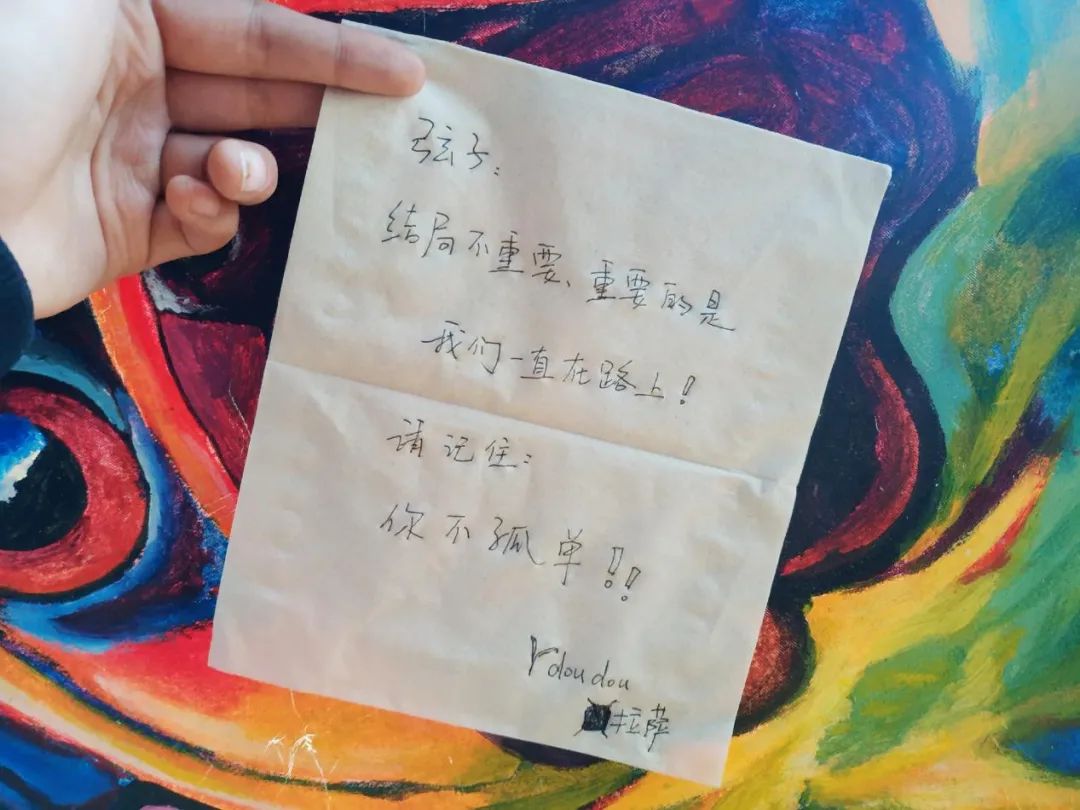 弦子：
结局不重要、重要的是
我们一直在路上！
请记住：
你不孤单！！
rdoudou
拉萨